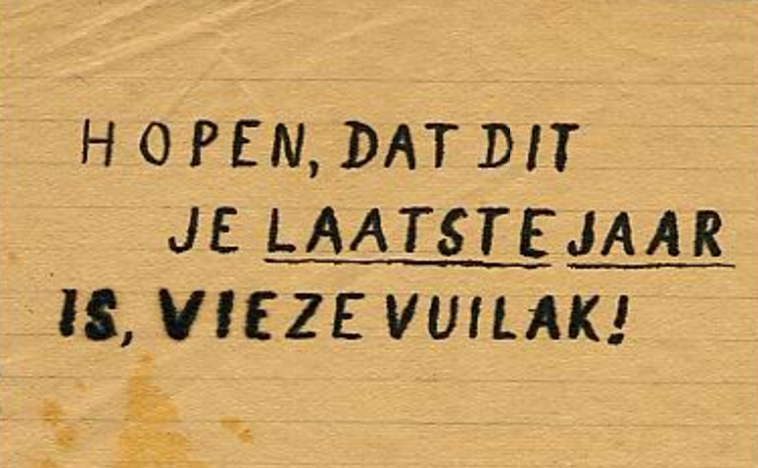 HOPEN, DAT DIT
JE LAATSTE JAAR
IS, VIEZE VUILAK!